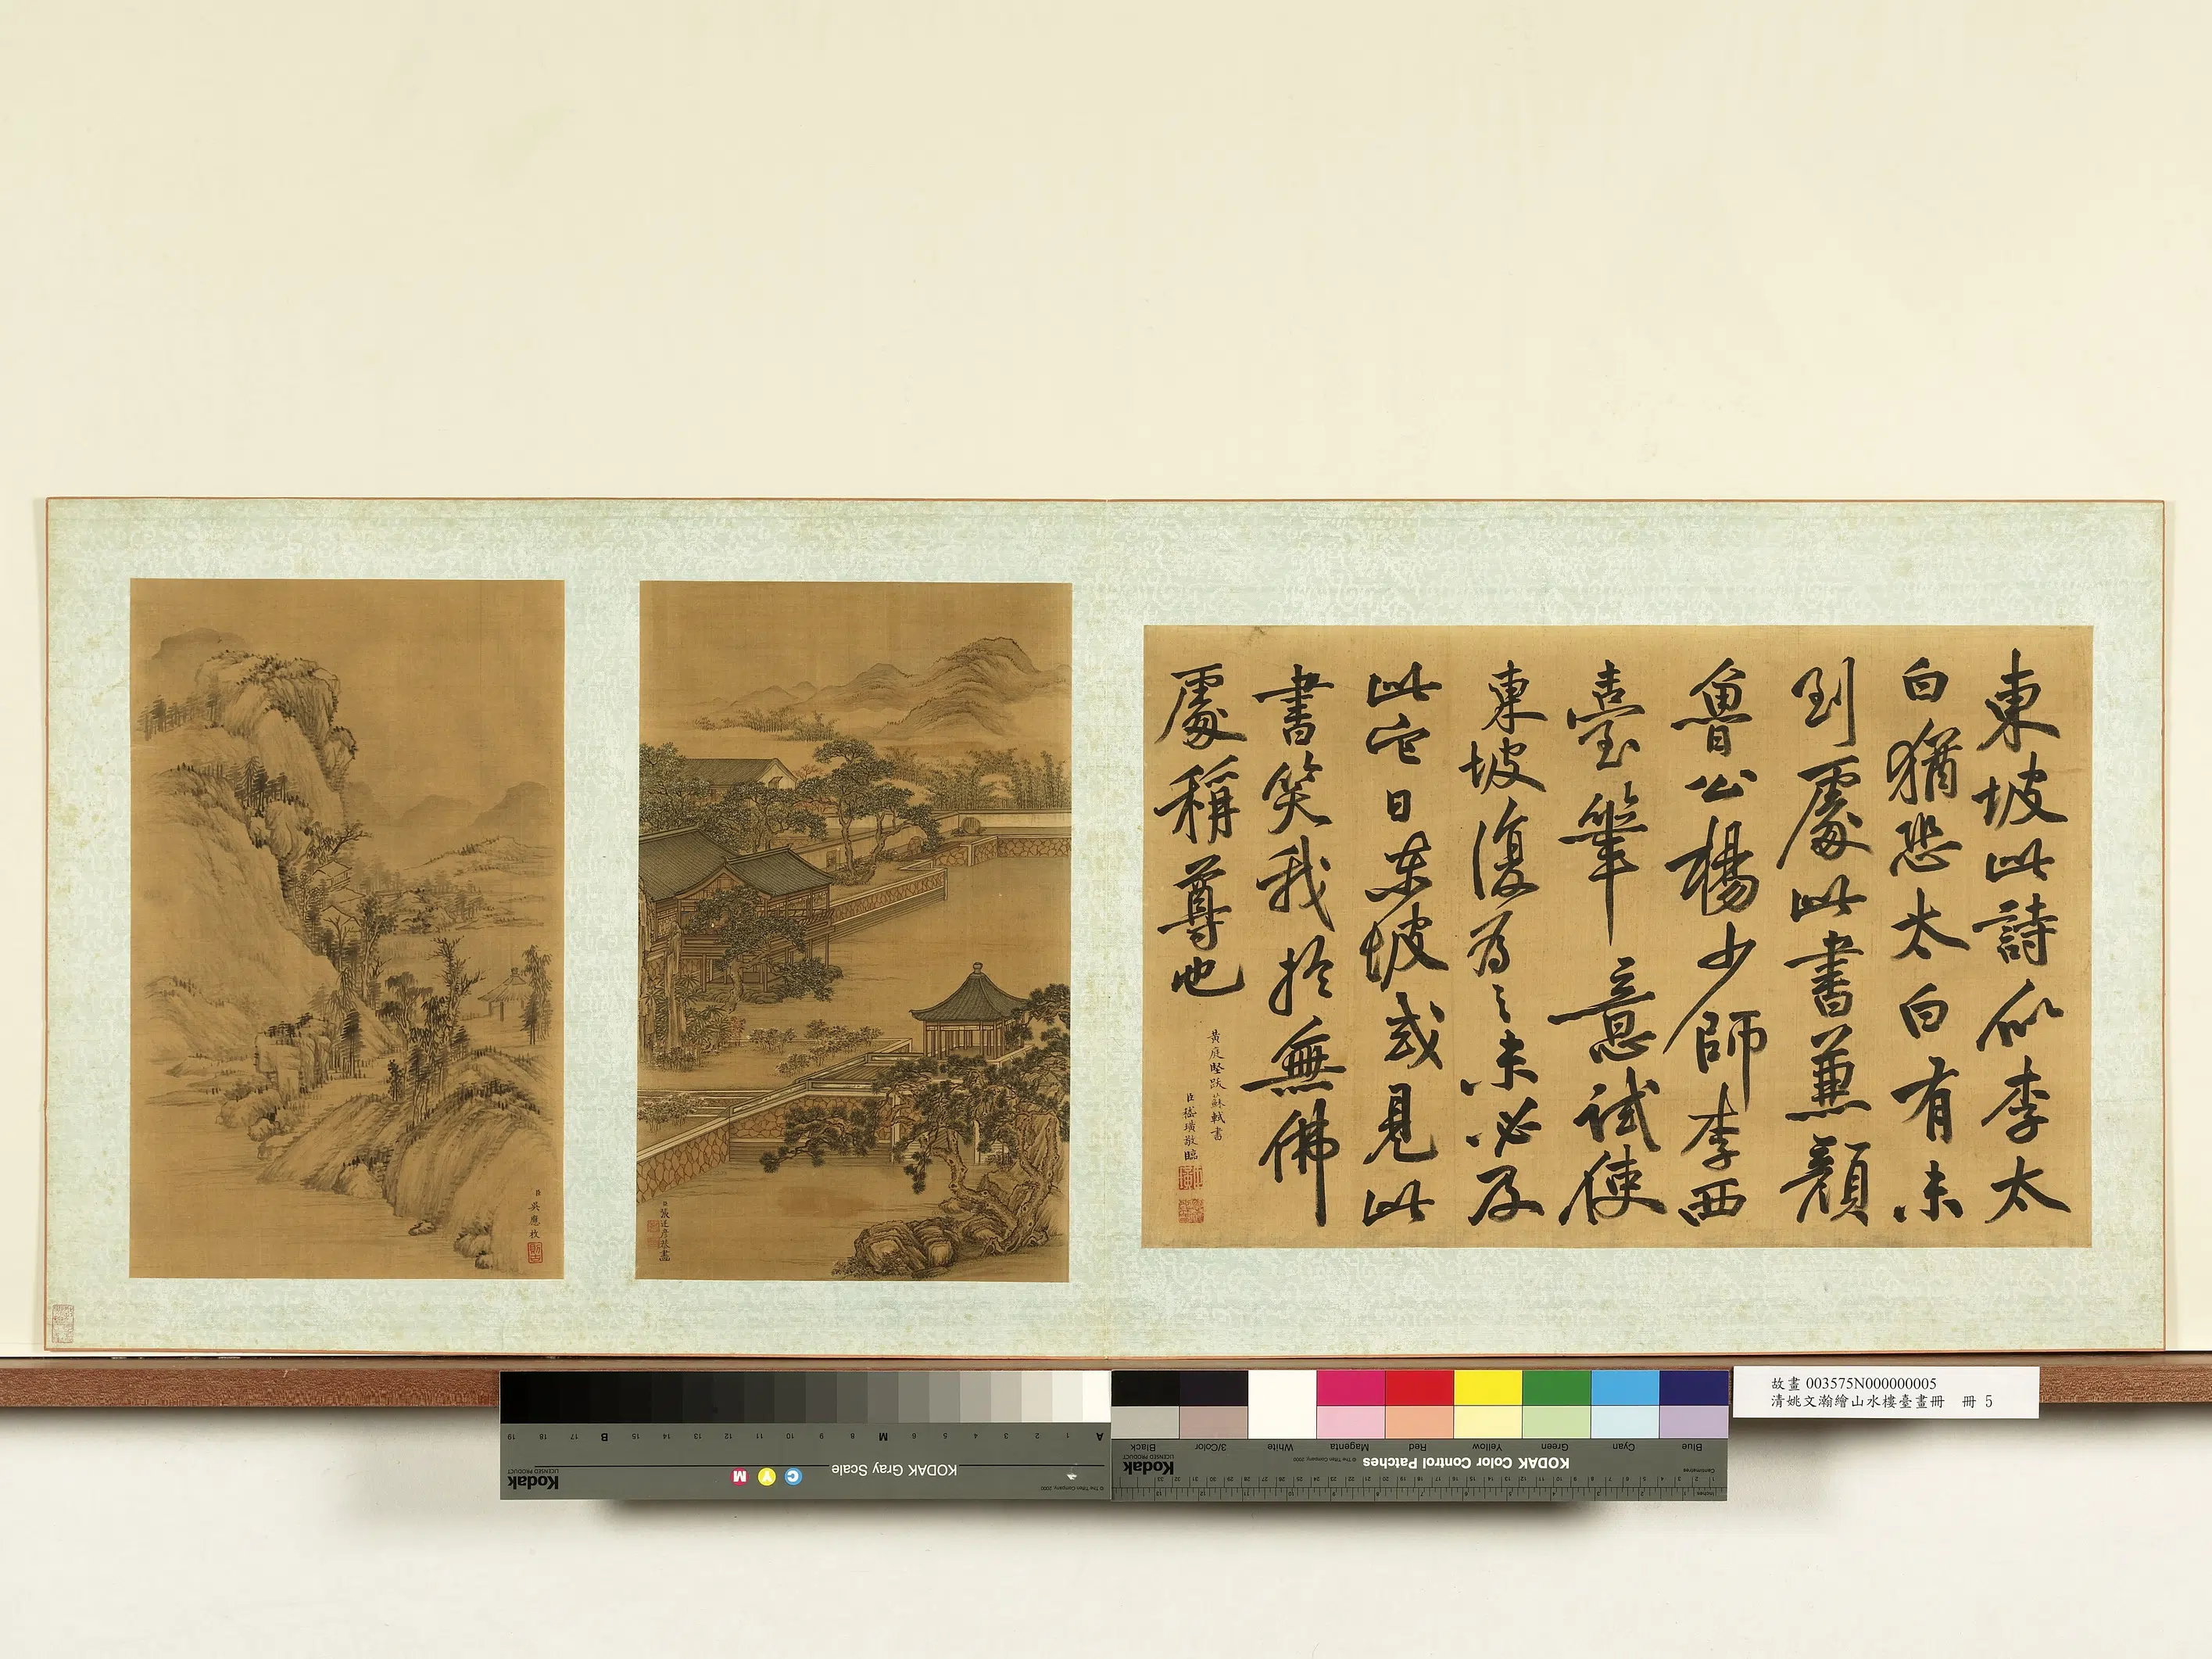 東坡此詩似李太
白猶恐太白有未
到處此書兼顏
魯公楊少師李西
臺筆意試使
東坡復為之未必及
此它日東坡或見此
書笑我於無佛
處稱尊也
黃庭堅跋蘇軾書
臣嵇璜敬臨
臣張廷彥恭畫
臣吳應枚
故畫 003575N000000005
清姚文瀚繪山水樓臺畫冊 冊 5
A 1 2 3 4 5 6 M 8 9 10 11 12 13 14 15 B 17 18 19
KODAK Gray Scale
C Y M
Kodak
LICENSED PRODUCT
© The Tiffen Company, 2000
Blue Cyan Green Yellow Red Magenta White 3/Color Black
KODAK Color Control Patches
© The Tiffen Company, 2000
Kodak
LICENSED PRODUCT
Centimetres
Inches